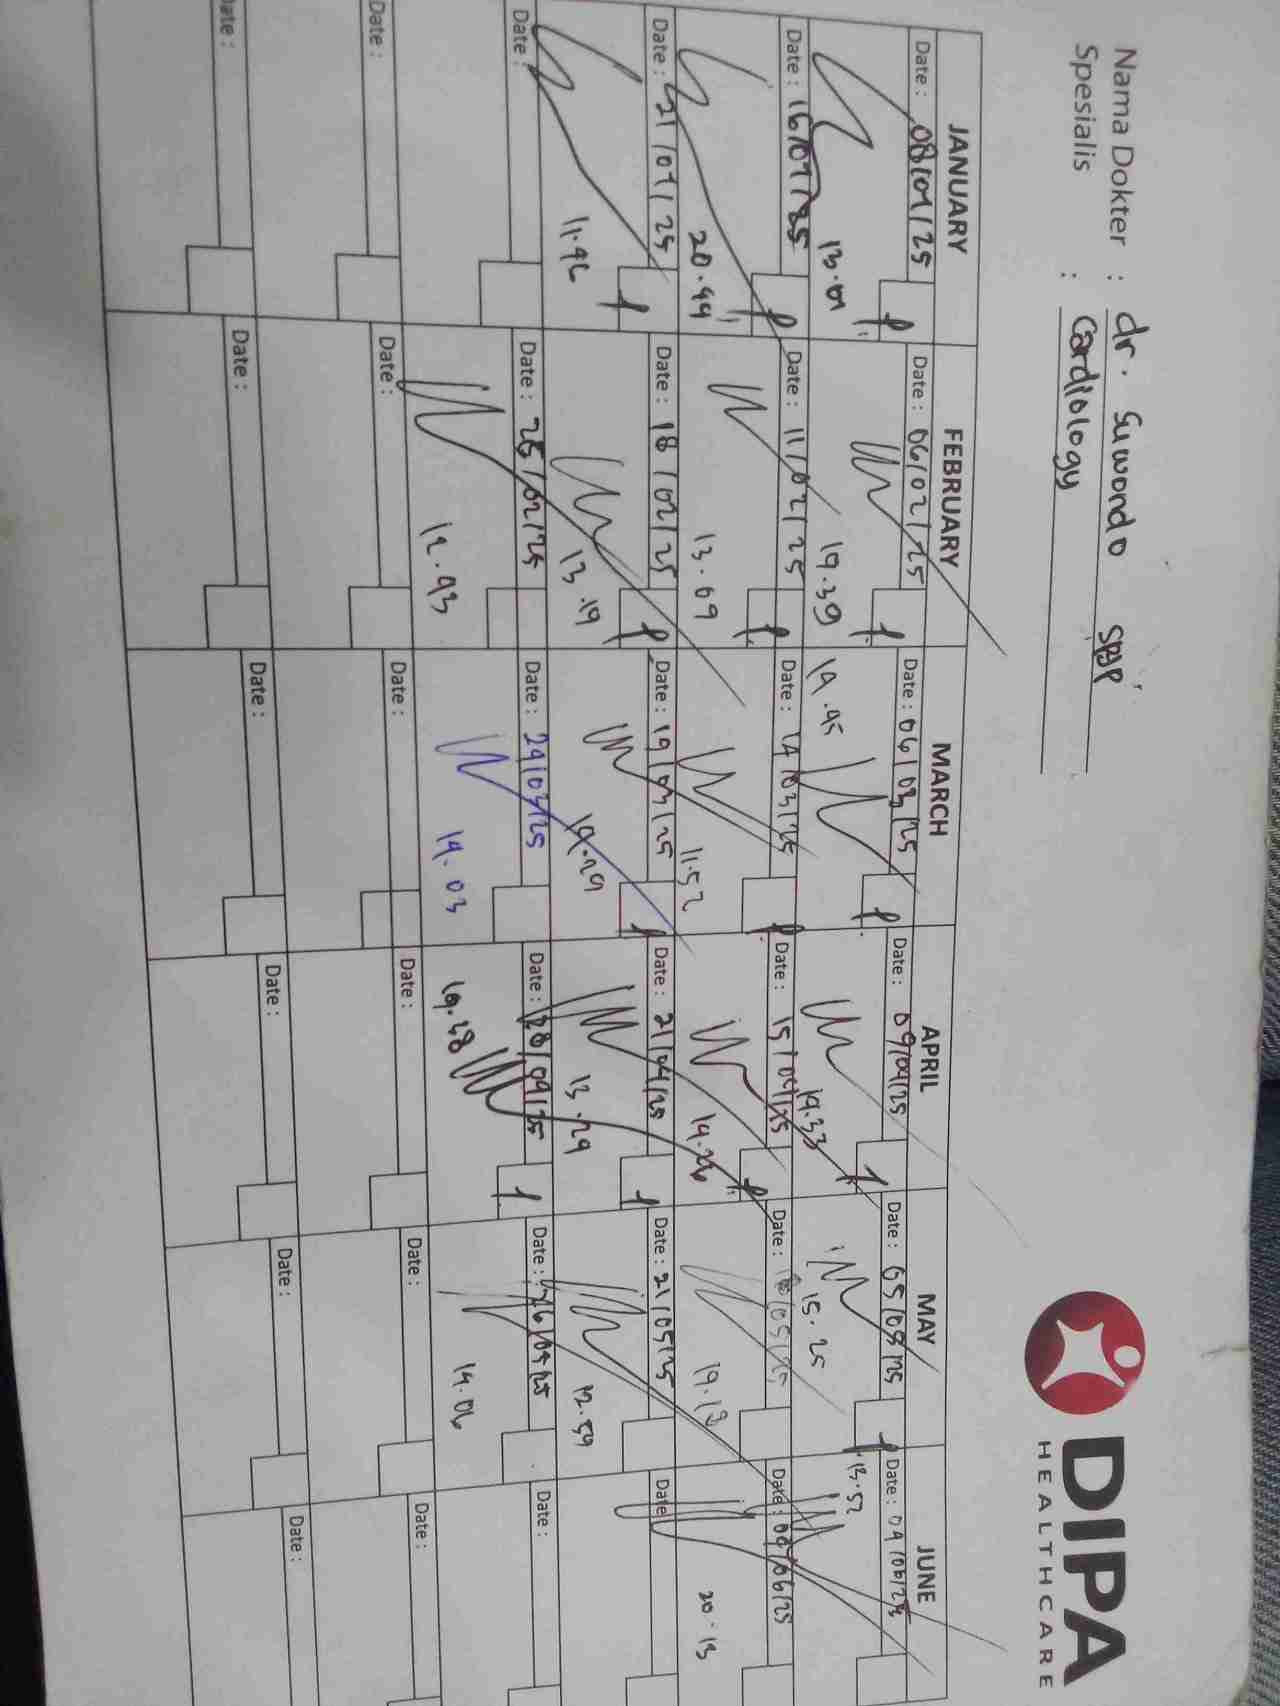 Nama Dokter : dr. Suwondo SpJP
Spesialis : Cardiology
DIPA
HEALTHCARE
JANUARY FEBRUARY MARCH APRIL MAY JUNE
Date : 08/01/25 Date : 06/02/25 Date : 06/03/25 Date : 09/04/25 Date : 05/05/25 Date : 04/06/25
13.01 19.39 19.45 19.33 15.25 13.52
Date : 16/01/25 Date : 11/02/25 Date : 14/03/25 Date : 15/04/25 Date : Date : 06/25
20.44 13.09 11.52 14.26 19.13 20.13
Date : 21/01/25 Date : 18/02/25 Date : 19/03/25 Date : 21/04/25 Date : 21/05/25 Date
11.46 13.19 19.29 13.29 12.59
Date : Date : 25/02/25 Date : 24/03/25 Date : 28/04/25 Date : Date :
12.43 14.03 19.38 14.06
Date : Date : Date : Date : Date : Date :
Date : Date : Date : Date : Date : Date :